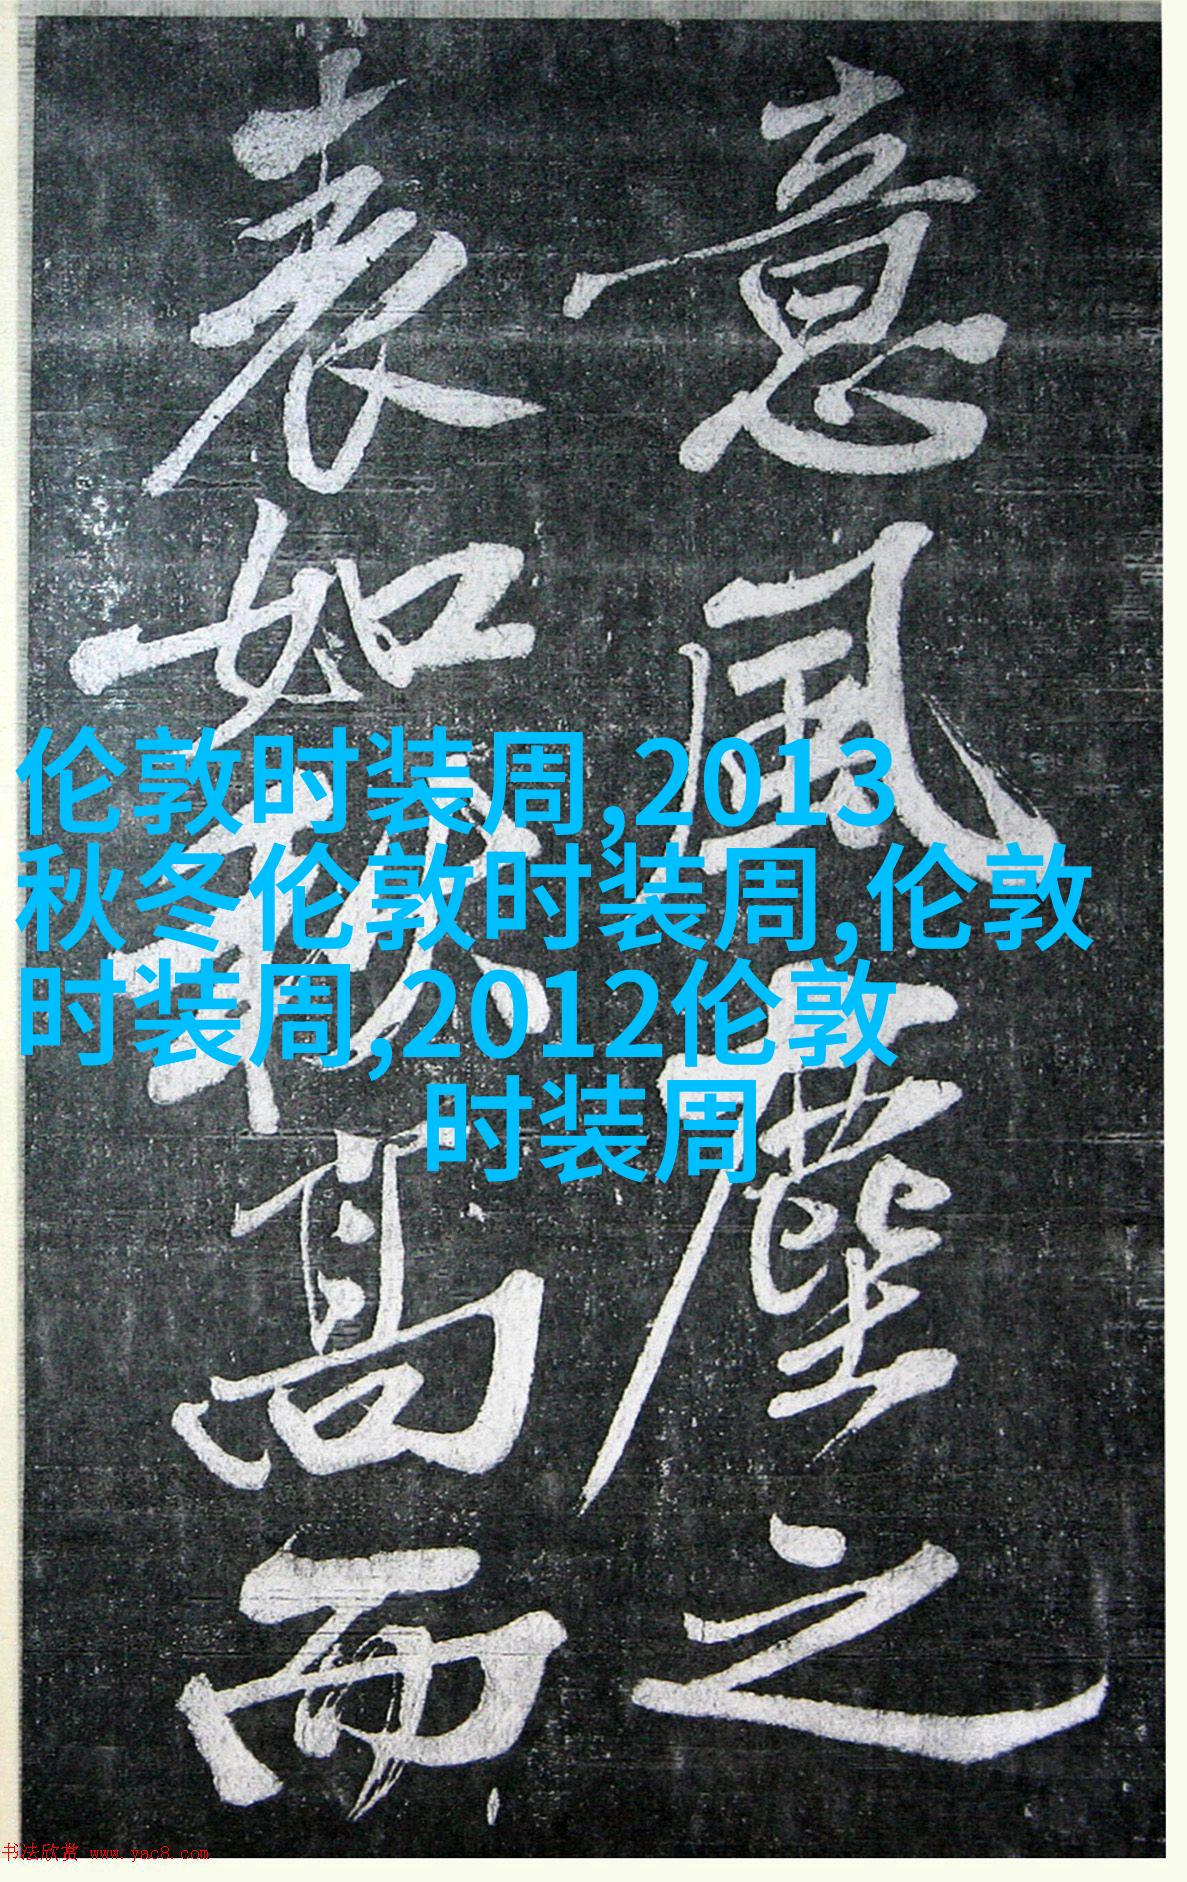 意風塵之
表如秋高而
伦敦时装周,2013
秋冬伦敦时装周,伦敦
时装周,2012伦敦
时装周
书法欣赏 www.yac8.com